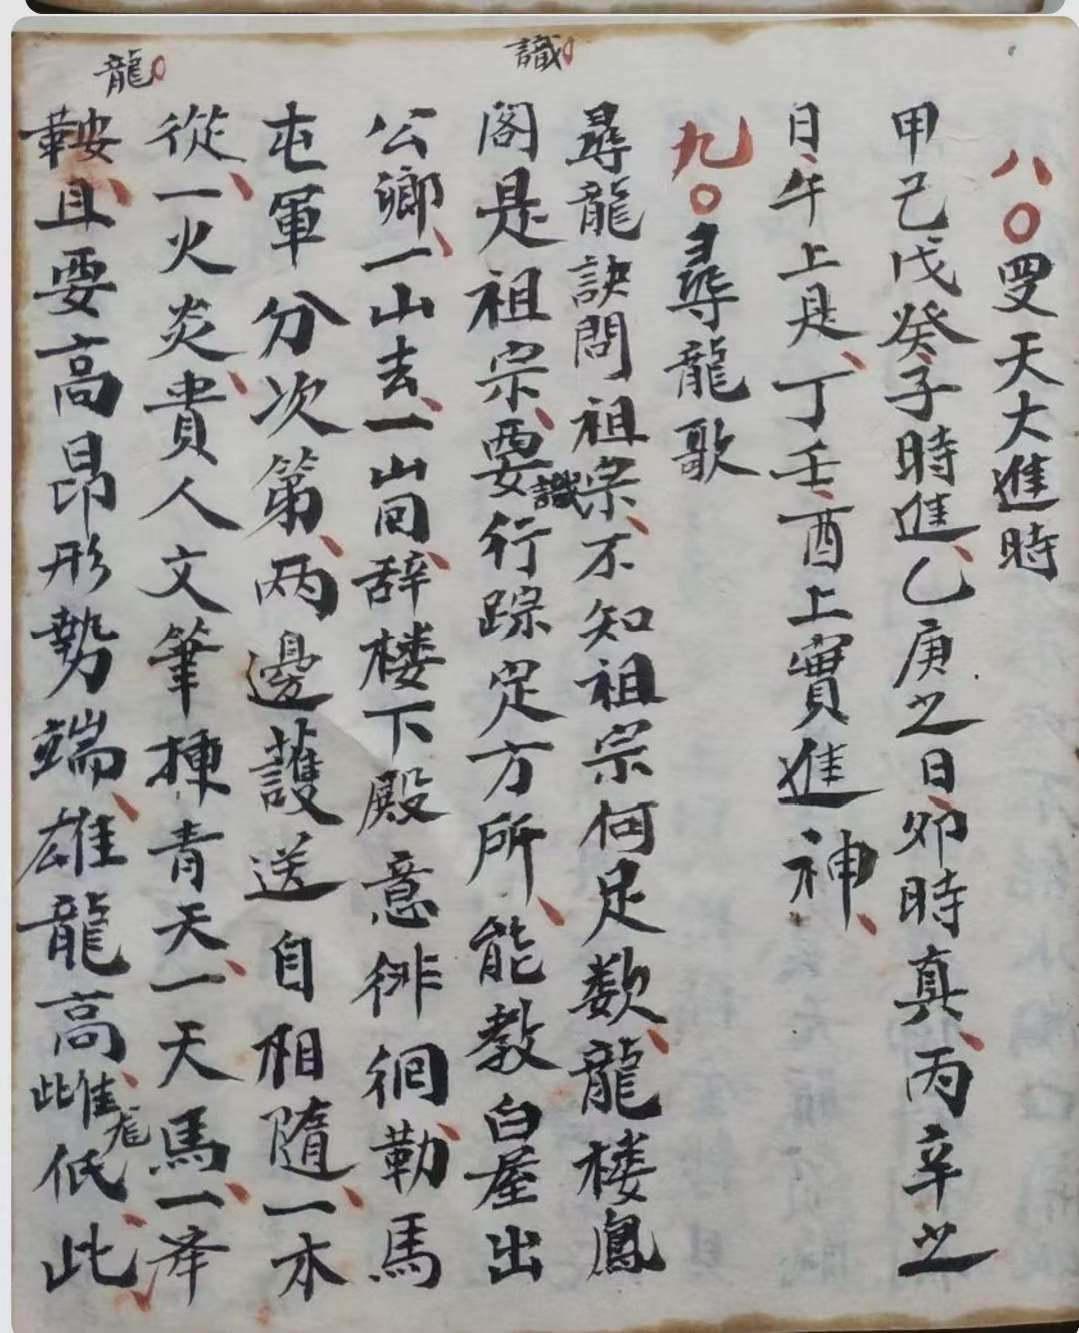 八〇罡天大進時
甲己戊癸子時進乙庚之日卯時真丙辛之
日午上是丁壬酉上實進神
九〇尋龍歌
尋龍訣問祖宗不知祖宗何足数龍楼鳳
閣是祖宗要識行踪定方所能教白屋出
公卿一山去一山回辞楼下殿意徘徊勒馬
屯軍分次第两邊護送自相隨一木
從一火炎貴人文筆揀青天一天馬一泽
鞍且要高昂形勢端雄龍高雌龍低此
識
龍